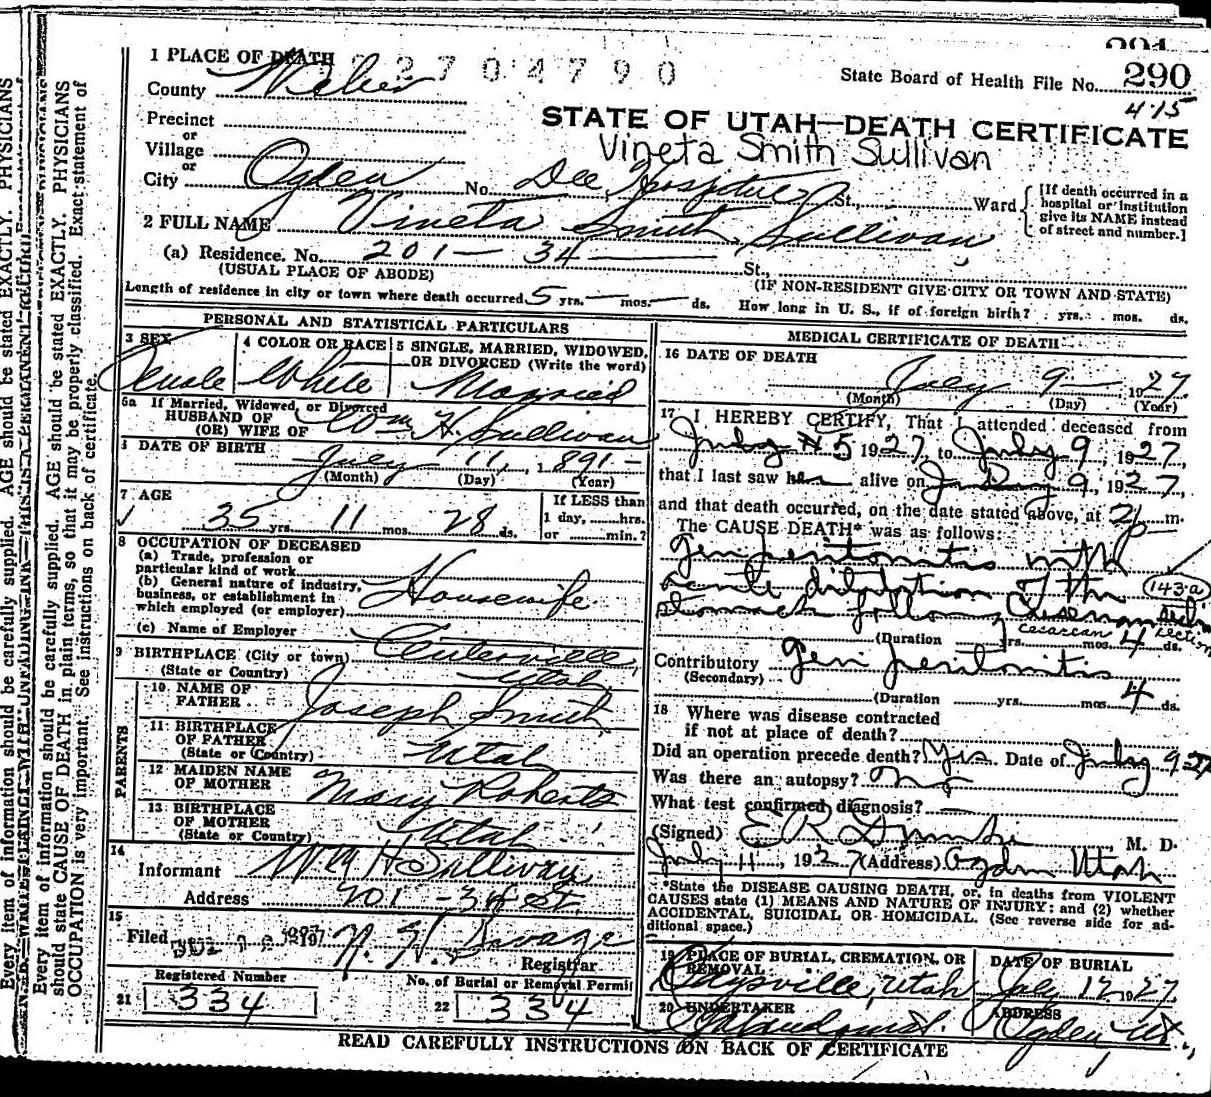 1 PLACE OF DEATH 2 7 0 4 7 9 0
State Board of Health File No. 290
415
County Weber
STATE OF UTAH—DEATH CERTIFICATE
Vineta Smith Sullivan
Precinct
or
Village
or
City Ogden No. Dee Hospital St., Ward
[If death occurred in a
hospital or institution
give its NAME instead
of street and number.]
2 FULL NAME Vineta Smith Sullivan
(a) Residence. No. 201 - 34 St.,
(USUAL PLACE OF ABODE) (IF NON-RESIDENT GIVE CITY OR TOWN AND STATE)
Length of residence in city or town where death occurred 5 yrs. — mos. — ds. How long in U. S., if of foreign birth? yrs. mos. ds.
PERSONAL AND STATISTICAL PARTICULARS
3 SEX 4 COLOR OR RACE 5 SINGLE, MARRIED, WIDOWED,
OR DIVORCED (Write the word)
Female White Married
5a If Married, Widowed, or Divorced
HUSBAND OF
(OR) WIFE OF Wm H. Sullivan
DATE OF BIRTH July 11, 1891
(Month) (Day) (Year)
7 AGE 35 yrs. 11 mos. 28 ds.
If LESS than
1 day, hrs.
or min.?
8 OCCUPATION OF DECEASED
(a) Trade, profession or
particular kind of work
(b) General nature of industry,
business, or establishment in
which employed (or employer) Housewife
(c) Name of Employer
9 BIRTHPLACE (City or town) Centerville,
(State or Country) Utah
PARENTS
10 NAME OF
FATHER Joseph Smith
11 BIRTHPLACE
OF FATHER
(State or Country) Utah
12 MAIDEN NAME
OF MOTHER Mary Roberts
13 BIRTHPLACE
OF MOTHER
(State or Country) Utah
14
Informant Wm H Sullivan
Address 201 - 34 St.
15
Filed 1927 Savage
Registrar
Registered Number No. of Burial or Removal Permit
21 334 22 334
MEDICAL CERTIFICATE OF DEATH
16 DATE OF DEATH
July 9 1927
(Month) (Day) (Year)
17 I HEREBY CERTIFY, That I attended deceased from
July 5 1927, to July 9, 1927,
that I last saw alive on July 9, 1927,
and that death occurred, on the date stated above, at 2 P m.
The CAUSE DEATH* was as follows:
Gen peritonitis with
acute dilatation of the (143-a)
stomach following
cesarean section
(Duration yrs. mos. 4 ds.
Contributory Gen peritonitis
(Secondary)
(Duration yrs. mos. 4 ds.
18 Where was disease contracted
if not at place of death?
Did an operation precede death? Yes Date of July 9-27
Was there an autopsy? no
What test confirmed diagnosis?
(Signed) E R M. D.
July 11, 1927 (Address) Ogden Utah
*State the DISEASE CAUSING DEATH, or, in deaths from VIOLENT
CAUSES state (1) MEANS AND NATURE OF INJURY; and (2) whether
ACCIDENTAL, SUICIDAL OR HOMICIDAL. (See reverse side for ad-
ditional space.)
19 PLACE OF BURIAL, CREMATION, OR
REMOVAL
Kaysville, Utah
DATE OF BURIAL
July 12 1927
20 UNDERTAKER
ADDRESS
Ogden Ut.
READ CAREFULLY INSTRUCTIONS ON BACK OF CERTIFICATE
Every item of information should be carefully supplied. AGE should be stated EXACTLY. PHYSICIANS
should state CAUSE OF DEATH in plain terms, so that it may be properly classified. Exact statement of
OCCUPATION is very important. See instructions on back of certificate.